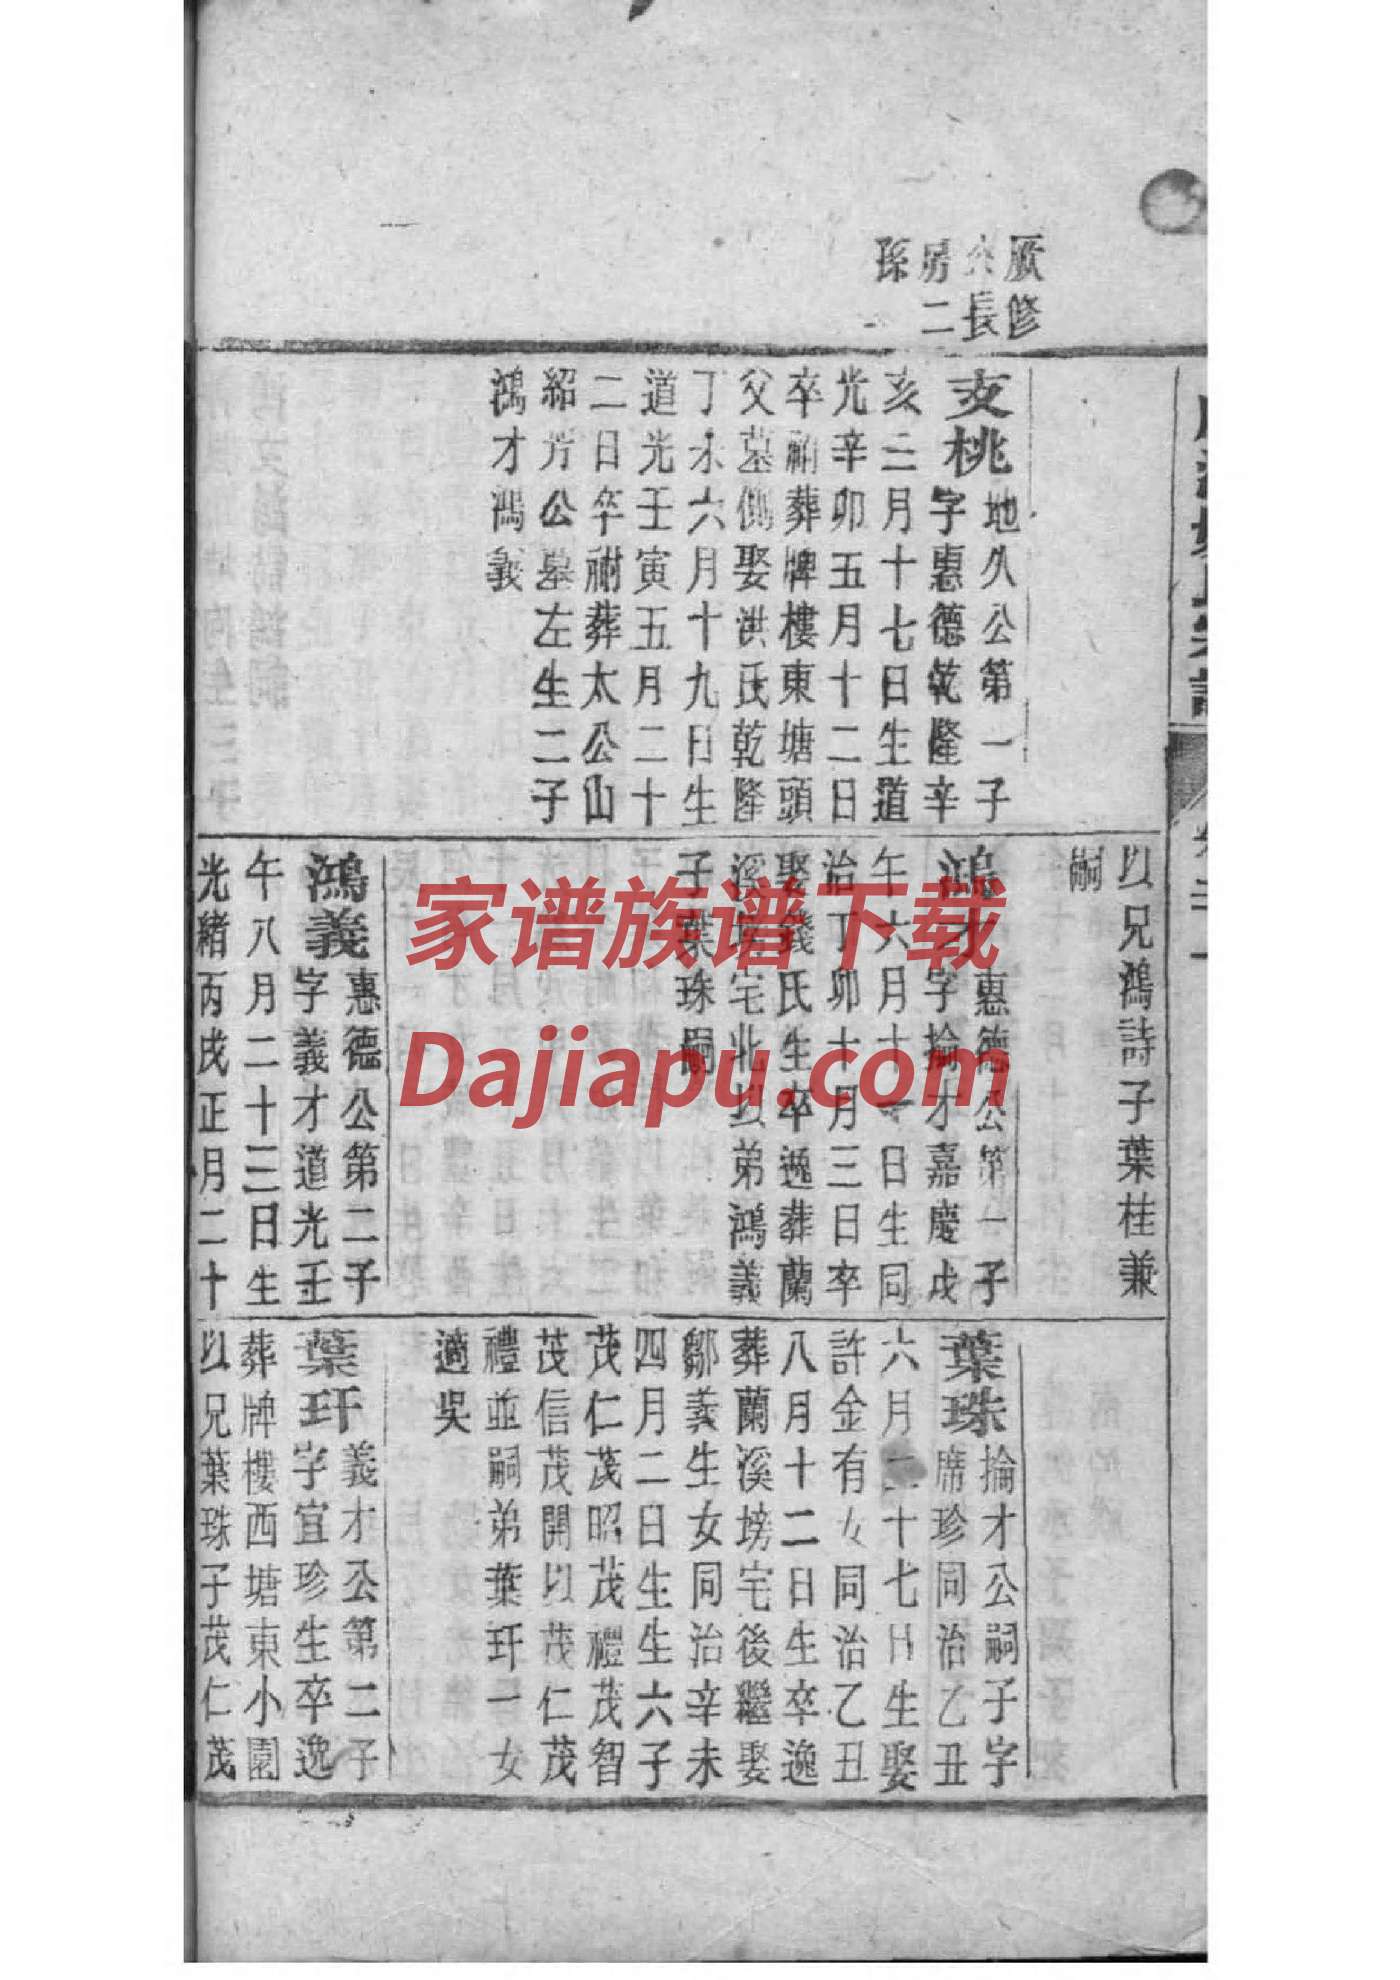 厥修
公長
房二
孫
支桃
地久公第一子
字惠德乾隆辛
亥二月十七日生道
光辛卯五月十二日
卒祔葬牌樓東塘頭
父墓側娶洪氏乾隆
丁未六月十九日生
道光壬寅五月二十
二日卒祔葬太公山
紹芳公墓左生二子
鴻才鴻義
以兄鴻詩子葉桂兼
嗣
鴻才
惠德公第一子
字掄才嘉慶戊
午六月十一日生同
治丁卯十月三日卒
娶錢氏生卒逸葬蘭
溪塝宅北以弟鴻義
子葉珠嗣
鴻義
惠德公第二子
字義才道光壬
午八月二十三日生
光緒丙戌正月二十
葉珠
掄才公嗣子字
席珍同治乙丑
六月二十七日生娶
許金有女同治乙丑
八月十二日生卒逸
葬蘭溪塝宅後繼娶
鄒義生女同治辛未
四月二日生生六子
茂仁茂昭茂禮茂智
茂信茂開以茂仁茂
禮並嗣弟葉玕一女
適吳
葉玕
義才公第二子
字宜珍生卒逸
葬牌樓西塘東小園
以兄葉珠子茂仁茂
家谱族谱下载
Dajiapu.com